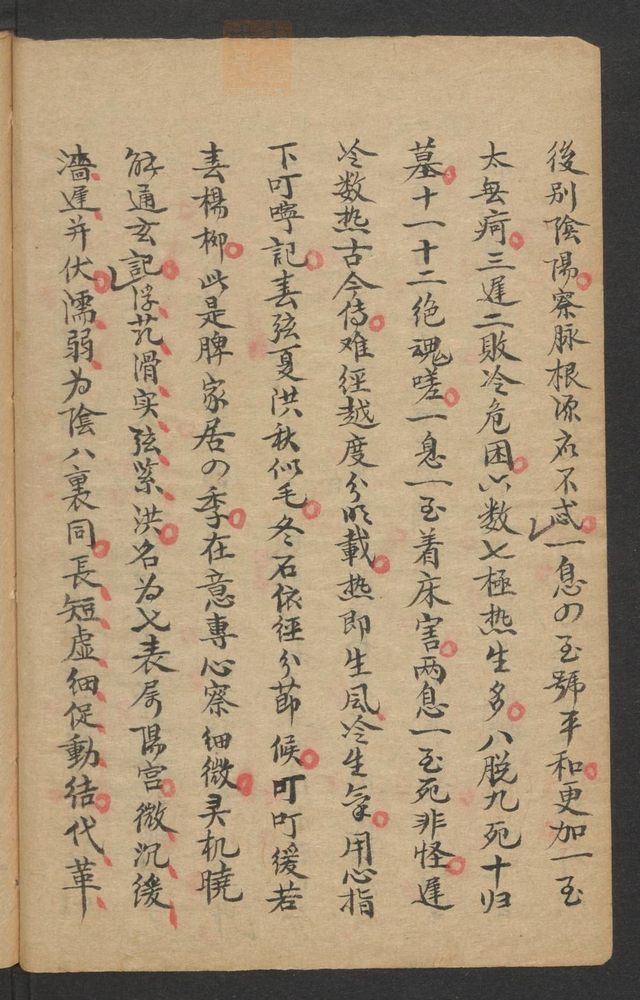 後别陰陽察脉根源应不惑一息の至號平和更加一至
太无疴三遲二敗冷危困六数七極热生多八脱九死十归
墓十一十二绝魂嗟一息一至着床害两息一至死非怪遲
冷数热古今传难經越度分明載热即生風冷生氣用心指
下叮嚀記春弦夏洪秋似毛冬石依經分節候叮叮缓若
春楊柳此是脾家居の季在意專心察细微灵机曉
解通玄記浮芤滑实弦紧洪名为七表属陽宫微沉缓
濇遲并伏濡弱为陰八裏同長短虚细促動结代革